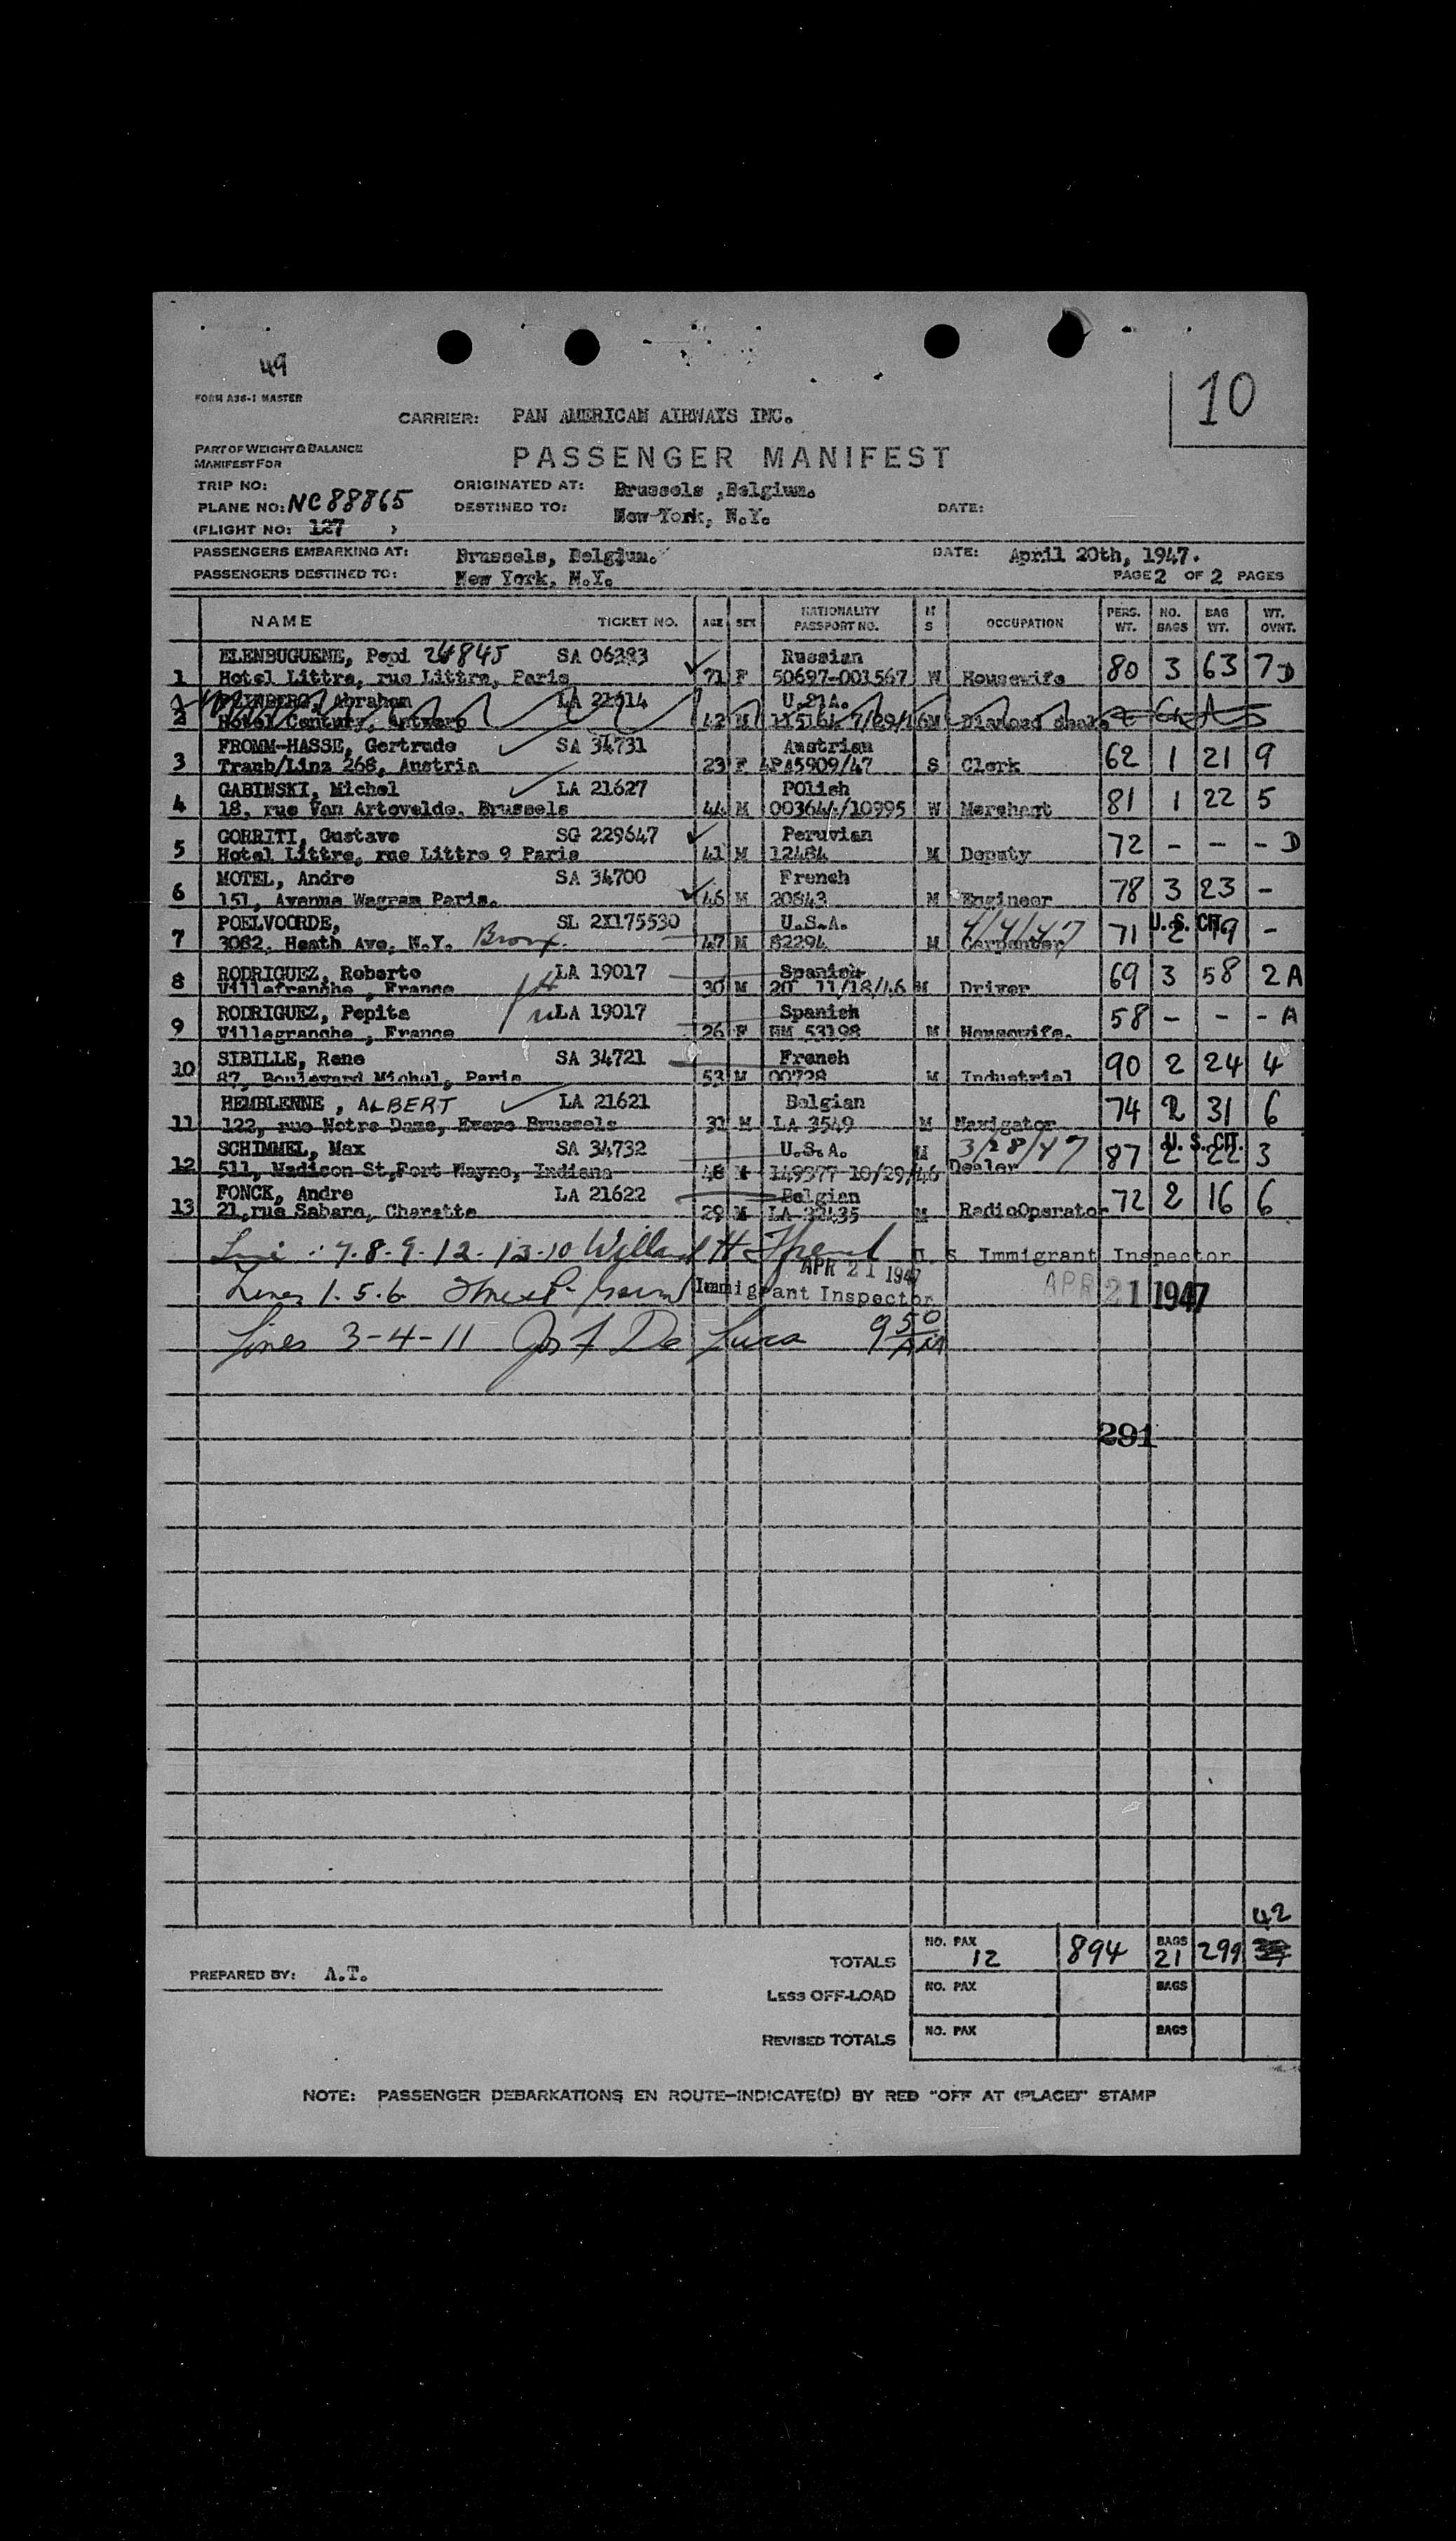 49
10
FORM A36-1 MASTER
CARRIER: PAN AMERICAN AIRWAYS INC.
PART OF WEIGHT & BALANCE
MANIFEST FOR
PASSENGER MANIFEST
TRIP NO:
ORIGINATED AT: Brussels ,Belgium.
PLANE NO: NC88865
DESTINED TO: New-York, N.Y.
DATE:
(FLIGHT NO: 127 )
PASSENGERS EMBARKING AT: Brussels, Belgium. DATE: April 20th, 1947.
PASSENGERS DESTINED TO: New York, N.Y. PAGE 2 OF 2 PAGES
NAME TICKET NO. AGE SEX NATIONALITY PASSPORT NO. M S OCCUPATION PERS. WT. NO. BAGS BAG WT. WT. OVNT.
ELENBUGUENE, Pepi 24845 SA 06283 Russian
1 Hotel Littre, rue Littre, Paris 71 F 50697-001567 W Housewife 80 3 63 7 D
Abraham LA 21614 U.S.A.
2 Hotel Century, Antwerp 42 M
FROMM-HASSE, Gertrude SA 34731 Austrian
3 Traub/Linz 268, Austria 23 F 4PA5909/47 S Clerk 62 1 21 9
GABINSKI, Michel LA 21627 Polish
4 18, rue Van Artevelde. Brussels 44 M 003644/10995 W Merchant 81 1 22 5
GORRITI, Gustave SG 229647 Peruvian
5 Hotel Littre, rue Littre 9 Paris 41 M 12484 M Deputy 72 - - - D
MOTEL, Andre SA 34700 French
6 151, Avenue Wagram Paris. 46 M 20843 M Engineer 78 3 23 -
POELVOORDE, SL 2X175530 U.S.A. 4/4/47 U.S. CIT.
7 3082, Heath Ave, N.Y. Bronx. 47 M 82294 M Carpenter 71 2 19 -
RODRIGUEZ, Roberto LA 19017 Spanish
8 Villefranche , France 30 M 20 11/18/46 M Driver 69 3 58 2 A
RODRIGUEZ, Pepita LA 19017 Spanish
9 Villagranche , France 26 F HM 53198 M Housewife. 58 - - - A
SIBILLE, Rene SA 34721 French
10 87, Boulevard Michel, Paris 53 M 00728 M Industrial 90 2 24 4
HEMBLENNE , ALBERT LA 21621 Belgian
11 122, rue Notre Dame, Evere Brussels 31 M LA 3549 M Navigator 74 2 31 6
SCHIMMEL, Max SA 34732 U.S.A. M 3/28/47 U. S. CIT.
12 511, Madison St,Fort Wayne, Indiana 48 M 149377 10/29/46 Dealer 87 2 22 3
FONCK, Andre LA 21622 Belgian
13 21,rue Sabare, Charette 29 M LA 32435 M RadioOperator 72 2 16 6
7.8.9.12.13.10 Willard H U. S Immigrant Inspector
APR 21 1947
Lines 1.5.6 Immigrant Inspector APR 21 1947
Lines 3-4-11 Jos F De Luca 9 50 AM
291
42
TOTALS NO. PAX 12 894 BAGS 21 299
PREPARED BY: A.T.
LESS OFF-LOAD NO. PAX BAGS
REVISED TOTALS NO. PAX BAGS
NOTE: PASSENGER DEBARKATIONS EN ROUTE-INDICATE(D) BY RED "OFF AT (PLACE)" STAMP